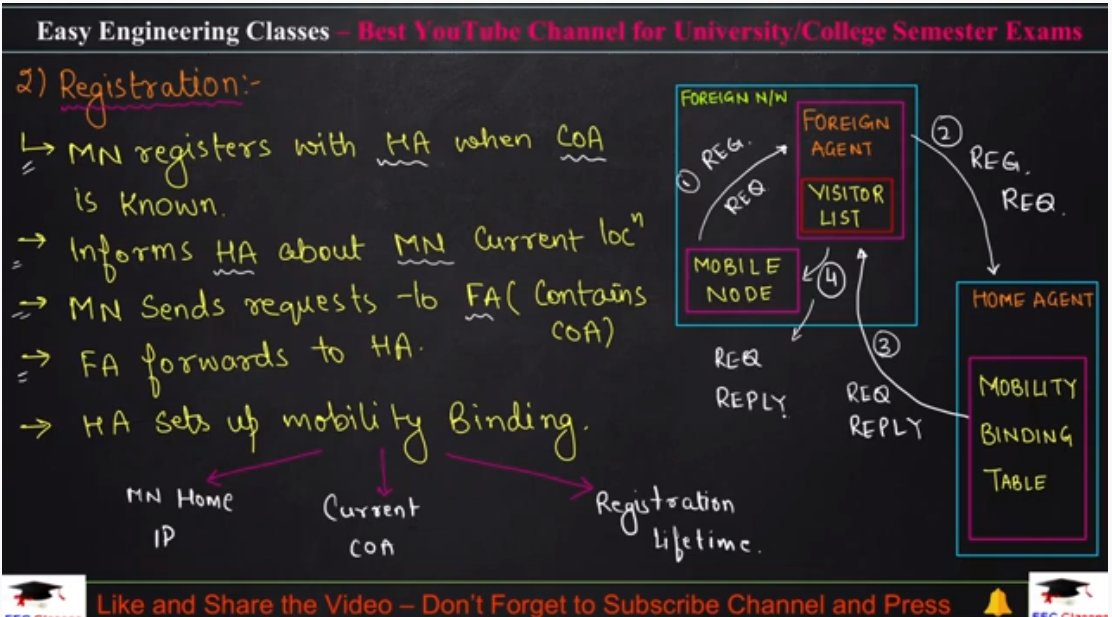 Easy Engineering Classes – Best YouTube Channel for University/College Semester Exams
2) Registration:-
↳ MN registers with HA when COA
is known.
→ Informs HA about MN Current locⁿ
→ MN Sends requests to FA (Contains
COA)
→ FA forwards to HA.
→ HA sets up mobility Binding.
MN Home
IP
Current
COA
Registration
Lifetime.
FOREIGN N/W
FOREIGN
AGENT
VISITOR
LIST
MOBILE
NODE
① REG.
REQ
② REG.
REQ.
HOME AGENT
MOBILITY
BINDING
TABLE
③
REQ
REPLY
④
REQ
REPLY
Like and Share the Video – Don't Forget to Subscribe Channel and Press